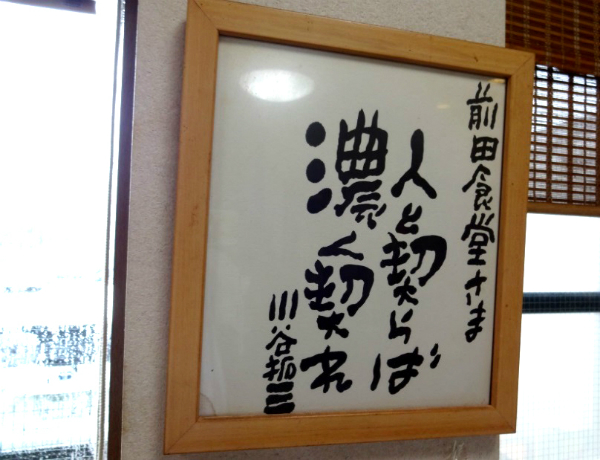 前田食堂さま
人と契らば
濃く契れ
川谷拓三